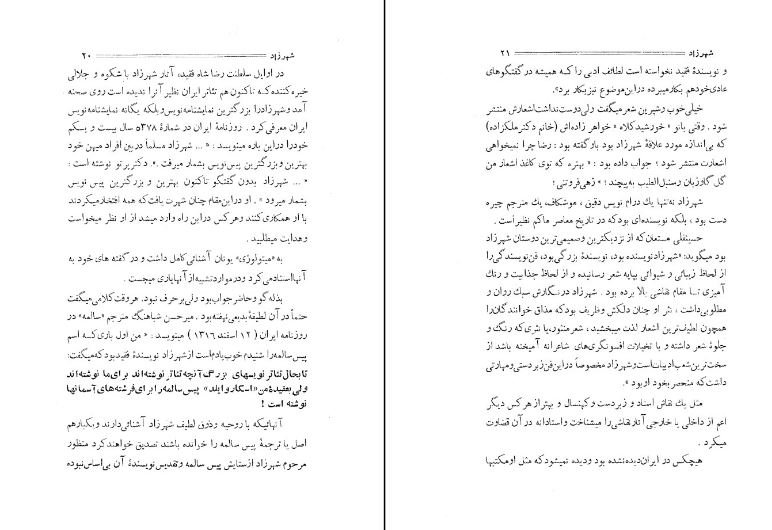 شهرزاد ۲۰
در اوایل سلطنت رضا شاه فقید، آثار شهرزاد با شکوه و جلالی
خیره‌کننده که تاکنون هم تئاتر ایران نظیر آنرا ندیده است روی صحنه
آمد و شهرزاد را بزرگترین نمایشنامه نویس و بلکه یگانه نمایشنامه نویس
ایران معرفی کرد . روزنامهٔ ایران در شمارهٔ ۵۳۷۸ سال بیست و یکم
خود را در این باره مینویسد : « ... شهرزاد مسلماً در بین افراد میهن خود
بهترین و بزرگترین پیس‌نویس بشمار میرفت .» دکتر پرتو نوشته است :
« ... شهرزاد بدون گفتگو تاکنون بهترین و بزرگترین پیس نویس
بشمار میرود » . او در این مقام چنان شهرت یافت که همه افتخار میکردند
با او همکاری کنند و هر کس در این راه وارد میشد از او نظر میخواست
و هدایت میطلبید .
به «میتولوژی» یونان آشنائی کامل داشت و در گفته های خود به
آنها استناد می کرد و در موارد تشبیه از آنها یاری میجست .
بذله گو و حاضر جواب بود ولی پر حرف نبود . هر وقت کلامی میگفت
حتماً در آن لطیفهٔ بدیعی نهفته بود . میر حسن شباهنگ مترجم «سالمه» در
روزنامه ایران ( ۱۲ اسفند ۱۳۱۶ ) مینویسد : « من اول باری که اسم
پیس سالمه را شنیدم خوب یادم است از شهرزاد نویسندهٔ فقید بود که میگفت:
تابحال تئاتر نویسهای بزرگ آنچه تئاتر نوشته‌اند برای ما نوشته‌اند
ولی بعقیدهٔ من «اسکار وایلد» پیس سالمه را برای فرشته‌های آسمانها
نوشته است !
آنهائیکه با روحیه و ذوق لطیف شهرزاد آشنائی دارند و یکبار هم
اصل یا ترجمهٔ پیس سالمه را خوانده باشند تصدیق خواهند کرد منظور
مرحوم شهرزاد از ستایش پیس سالمه و تقدیس نویسندهٔ آن بی‌اساس نبوده
شهرزاد ۲۱
و نویسندهٔ فقید نخواسته است لطائف ادبی را که همیشه در گفتگوهای
عادی خود هم بکار میبرده در این موضوع نیز بکار برد».
خیلی خوب و شیرین شعر میگفت ولی دوست نداشت اشعارش منتشر
شود . وقتی بانو « خورشید کلاه » خواهر زاده‌اش (خانم دکتر ملکزاده)
که بی‌اندازه مورد علاقهٔ شهرزاد بود باو گفته بود : رضا چرا نمیخواهی
اشعارت منتشر شود ؟ جواب داده بود : « بهتره که توی کاغذ اشعار من
گل گاوزبان و سنبل الطیب به پیچند ! » زهی فروتنی !
شهرزاد نه‌تنها یك درام نویس دقیق ، موشکاف، یك مترجم چیره
دست بود ، بلکه نویسنده‌ای بود که در تاریخ معاصر ما کم نظیر است .
حسینقلی مستعان که از نزدیکترین و صمیمی ترین دوستان شهرزاد
بود میگوید: «شهرزاد نویسنده بود، نویسندهٔ بزرگی بود، فن نویسندگی را
از لحاظ زیبائی و شیوائی بپایه شعر رسانیده و از لحاظ جذابیت و رنگ
آمیزی تا مقام نقاشی بالا برده بود . شهرزاد در نگارش سبك روان و
مطلوبی داشت ، نثر او چنان دلکش و ظریف بود که مذاق خوانندگان را
همچون لطیف‌ترین اشعار لذت میبخشید ، شعر منثور، یا نثری که رنگ و
جلوهٔ شعر داشته و با تخیلات افسونگری‌های شاعرانه آمیخته باشد از
سخت‌ترین شعب ادبیات است و شهرزاد مخصوصاً در این فن زبردستی و مهارتی
داشت که منحصر بخود او بود ».
مثل یك نقاش استاد و زبردست و کهنسال و بهتر از هر کس دیگر
اعم از داخلی یا خارجی آثار نقاشی را میشناخت و استادانه در آن قضاوت
میکرد .
هیچکس در ایران دیده نشده بود و دیده نمیشود که مثل او مکتبها